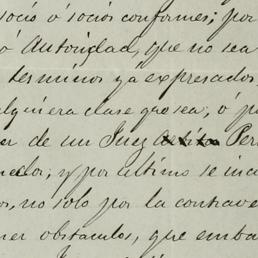 socio ó socios conformes; por
ó Autoridad, que no sea
terminos ya expresados,
alquiera clase que sea, ó p
er de un Juez Per
; y por último se in
or, no solo por la contrave
ner obstaculos, que emba